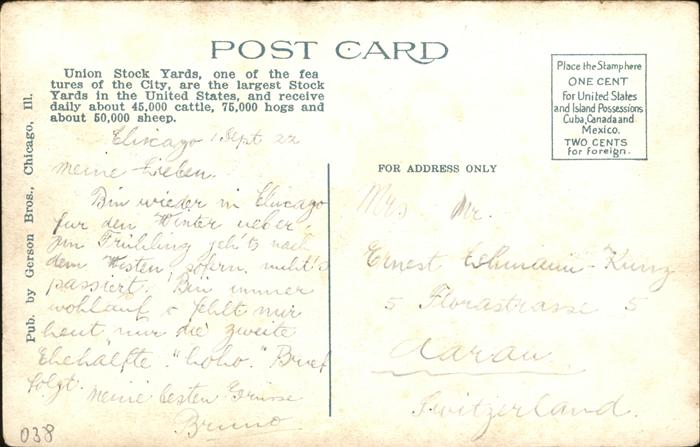 POST CARD
Union Stock Yards, one of the fea
tures of the City, are the largest Stock
Yards in the United States, and receive
daily about 45,000 cattle, 75,000 hogs and
about 50,000 sheep.
Pub. by Gerson Bros., Chicago, Ill.
Chicago 1 Sept 22
Meine Lieben.
Bin wieder in Chicago
fur den Winter ueber,
zum Frühling geht's nach
dem Westen, sofern nicht's
passiert. Bin immer
wohlauf & fehlt mir
heut nur die zweite
Ehehälfte. "hoho." Brief
folgt.
Meine besten Grüsse
Bruno
038
Place the Stamp here
ONE CENT
For United States
and Island Possessions
Cuba, Canada and
Mexico.
TWO CENTS
for Foreign.
FOR ADDRESS ONLY
Mrs Mr.
Ernest Lehmann-Kunz
5 Florastrasse 5
Aarau
Switzerland.